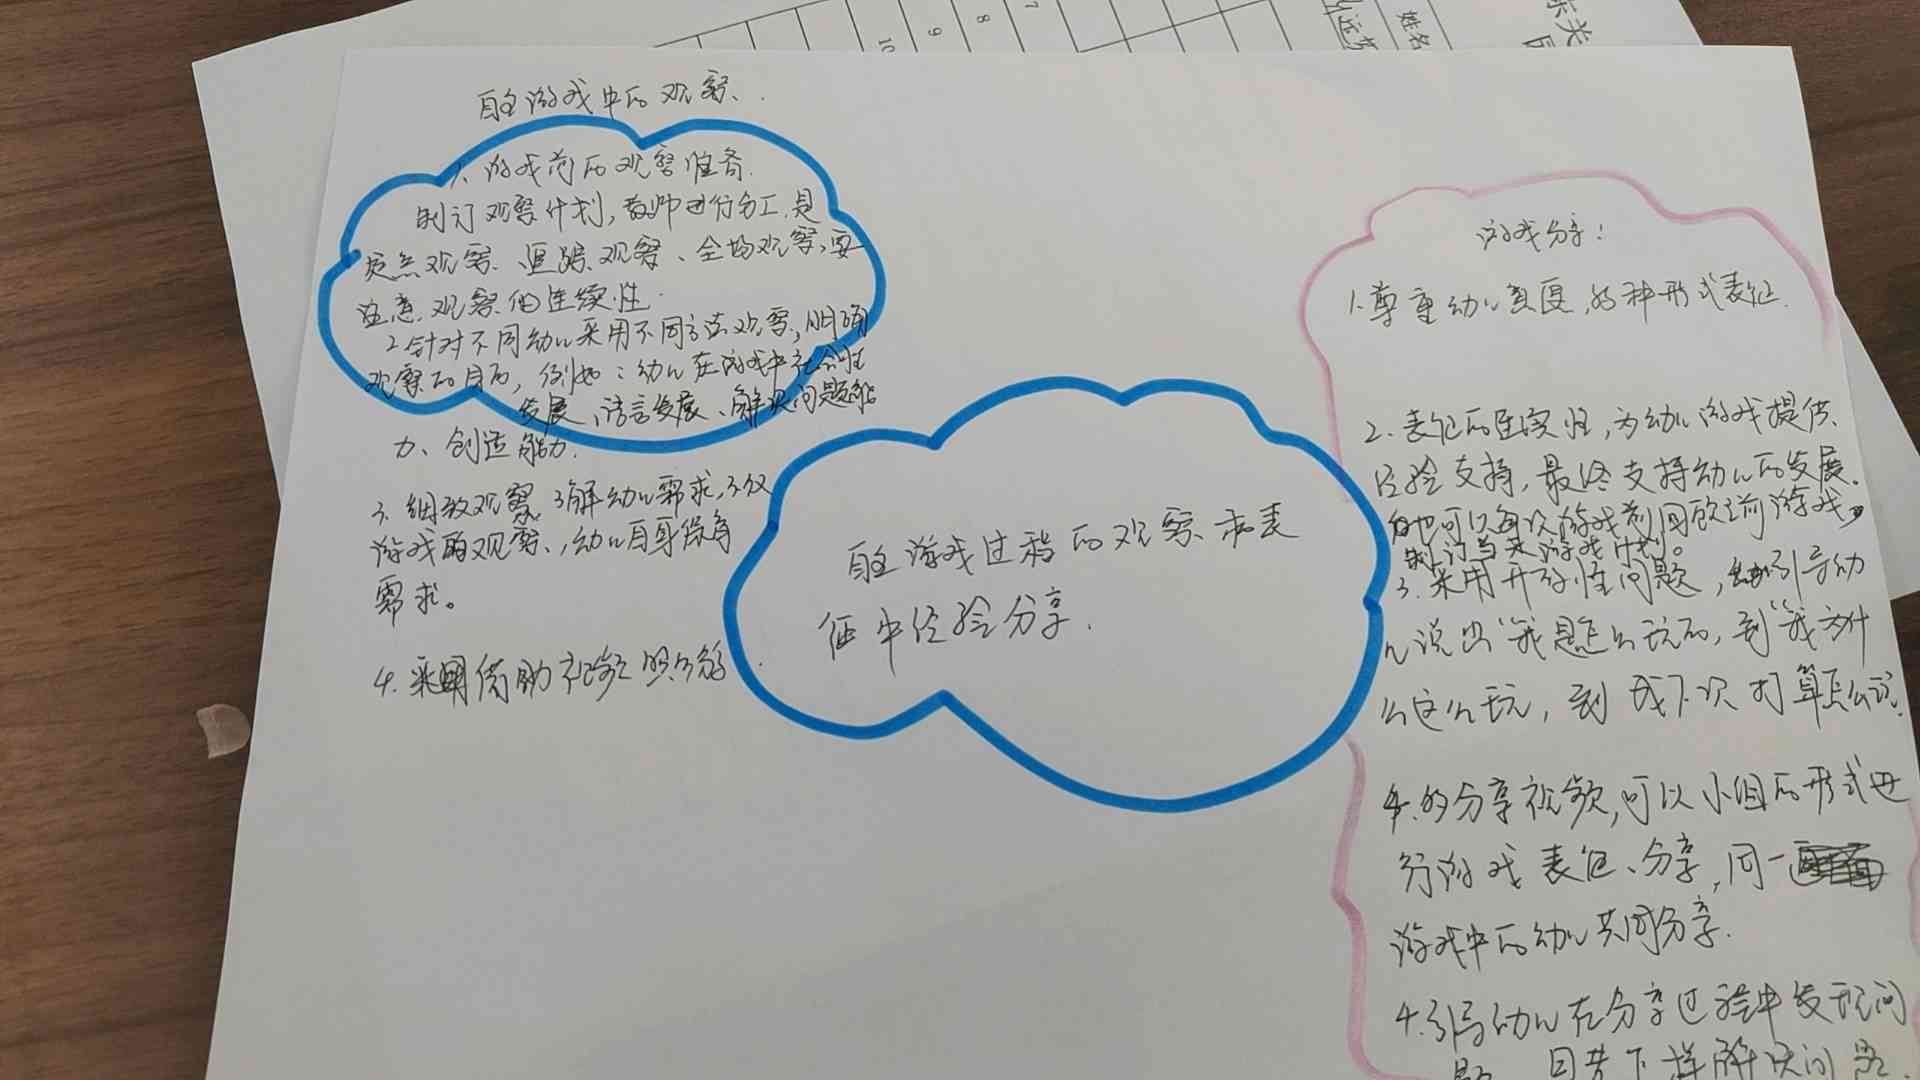 自主游戏中的观察.
1、游戏前的观察准备.
制订观察计划,教师进行分工,是
定点观察、追踪观察、全场观察,要
注意观察的连续性.
2.针对不同幼儿采用不同方法观察,明确
观察的目的,例如:幼儿在游戏中社会性
发展、语言发展、解决问题能
力、创造能力.
3.细致观察了解幼儿需求,不仅
游戏的观察、,幼儿自身保育
需求。
4.采用借助视频照
自主游戏过程的观察和表
征中经验分享.
游戏分享:
1.尊重幼儿 ,多种形式表征.
2.表征的连续性,为幼儿游戏提供
经验支持,最终支持幼儿的发展.
也可以每次游戏前回顾之前游戏,
制订当天游戏计划。
3.采用开放性问题,引导幼
儿说出“我是怎么玩的,到“我为什
么这么玩,到我下次打算怎么玩.
4.分享视频,可以小组的形式进
行游戏表征、分享,同一
游戏中的幼儿共同分享.
4.引导幼儿在分享过程中发现问
题 解决问题.
10
9
8
7
姓名